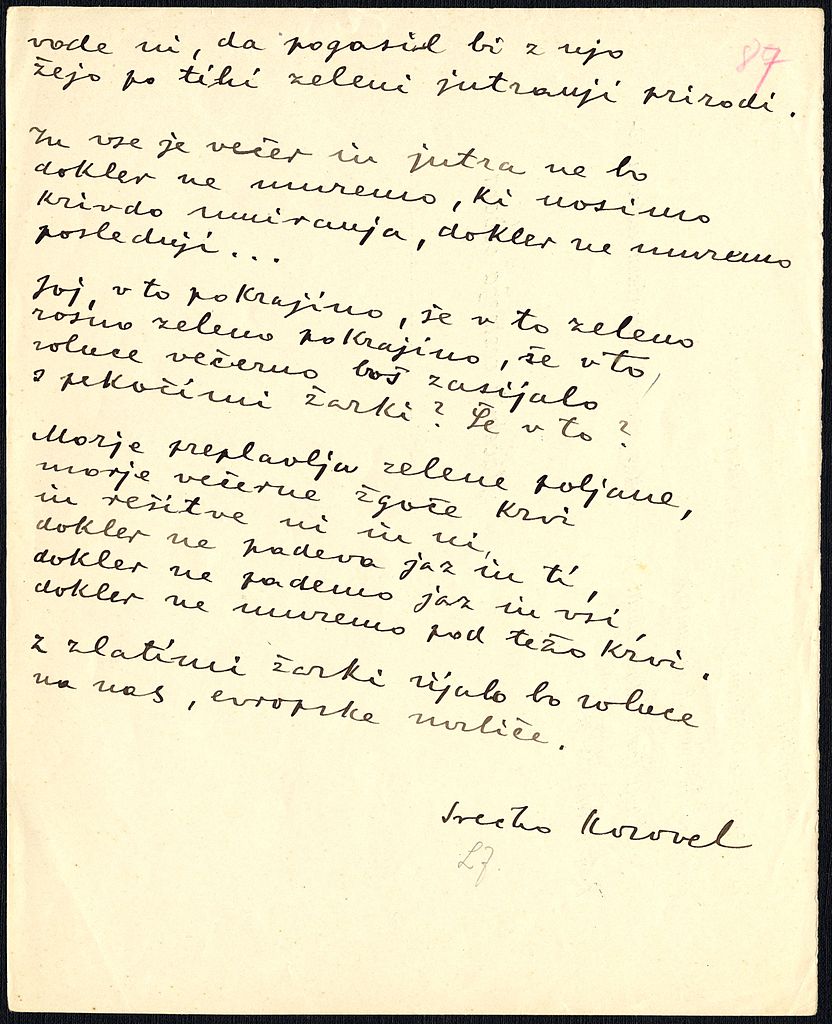 87
vode ni, da pogasil bi z njo
žejo po tihi zeleni jutranji prirodi.
In vse je večer in jutra ne bo
dokler ne umremo, ki nosimo
krivdo umiranja, dokler ne umremo
poslednji...
Joj, v to pokrajino, še v to zeleno
rosno zeleno pokrajino, še v to,
solnce večerno boš zasijalo
s pekočimi žarki? Še v to?
Morje preplavlja zelene poljane,
morje večerne žgoče krvi
in rešitve ni in ni,
dokler ne padeva jaz in ti,
dokler ne pademo jaz in vsi,
dokler ne umremo pod težo krvi.
Z zlatimi žarki sijalo bo solnce
na nas, evropske mrliče.
Srečko Kosovel